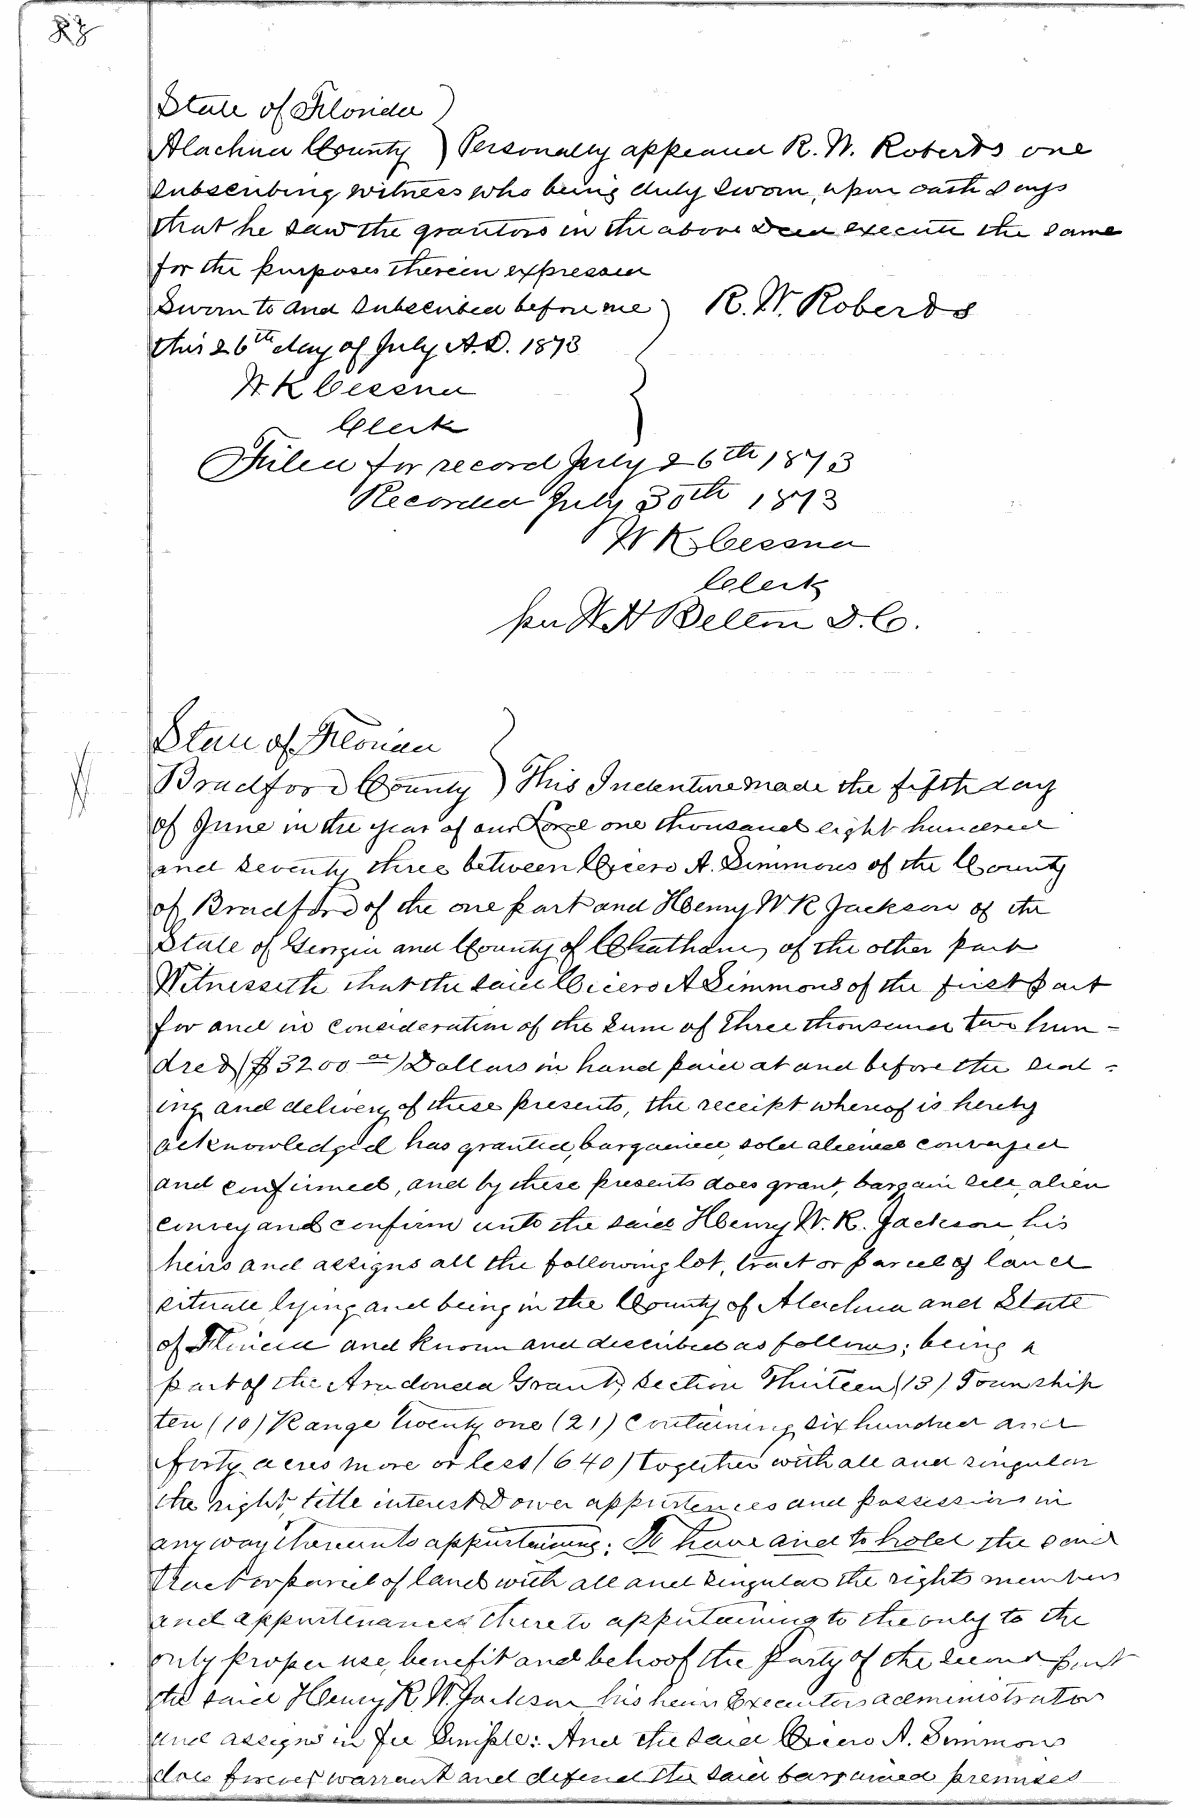 State of Florida
Alachua County ) Personally appeared R. W. Roberts one
subscribing witness who being duly sworn, upon oath says
that he saw the grantors in the above Deed execute the same
for the purposes therein expressed
Sworn to and subscribed before me ) R. W. Roberts
this 26th day of July A.D. 1873
W K Cessna
Clerk
Filed for record July 26th 1873
Recorded July 30th 1873
W K Cessna
Clerk
per W H Belton D.C.
State of Florida
Bradford County ) This Indenture made the fifth day
of June in the year of our Lord one thousand eight hundred
and seventy three between Cicero A. Simmons of the County
of Bradford of the one part and Henry W R Jackson of the
State of Georgia and County of Chatham, of the other part
Witnesseth that the said Cicero A Simmons of the first part
for and in consideration of the sum of Three thousand two hun-
dred ($3200 00) Dollars in hand paid at and before the seal-
ing and delivery of these presents, the receipt whereof is hereby
acknowledged has granted, bargained, sold aliened conveyed
and confirmed, and by these presents does grant, bargain sell, alien
convey and confirm unto the said Henry W. R. Jackson, his
heirs and assigns all the following lot, tract or parcel of land
situate, lying and being in the County of Alachua and State
of Florida and known and described as follows; being a
part of the Arudonda Grant, section Thirteen (13) Township
ten (10) Range Twenty one (21) Containing six hundred and
forty acres more or less (640) together with all and singular
the right, title interest Dower appurtences and possessions in
any way thereunto appurtaining: To have and to hold the said
tract or parcel of land with all and singular the rights members
and appurtenances there to appurtaining to the only to the
only proper use, benefit and behoof the party of the second part
the said Henry R. W. Jackson his heirs Executors administrators
and assigns in fee Simple: And the said Cicero A. Simmons
does forever warrant and defend the said bargained premises